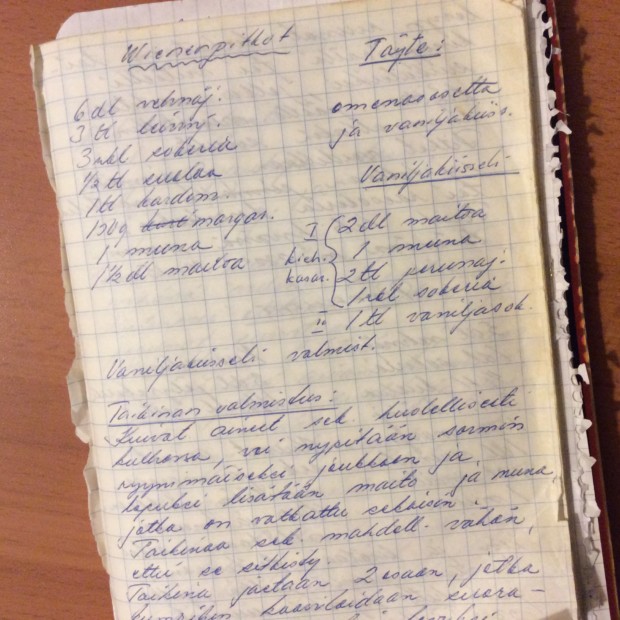 Wienerpitkot
6 dl vehnäj.
3 tl leivinj.
3 rkl sokeria
1/2 tl suolaa
1 tl kardem.
150g margar.
1 muna
1 1/2 dl maitoa
Täyte:
omenasosetta
ja vaniljakiiss.
Vaniljakiisseli
I
kieh.
kasar.
2 dl maitoa
1 muna
2 tl perunaj.
1 rkl sokeria
II 1 tl vaniljasok.
Vaniljakiisseli valmist.
Taikinan valmistus:
Kuivat aineet sek. huolellisesti
kulhossa, voi nypitään sormin
ryynimäiseksi joukkoon ja
lopuksi lisätään maito ja muna,
jotka on vatkattu sekaisin.
Taikinaa sek. mahdoll. vähän,
ettei se sitkisty.
Taikina jaetaan 2 osaan, jotka
kumpikin kaaviloidaan suora-